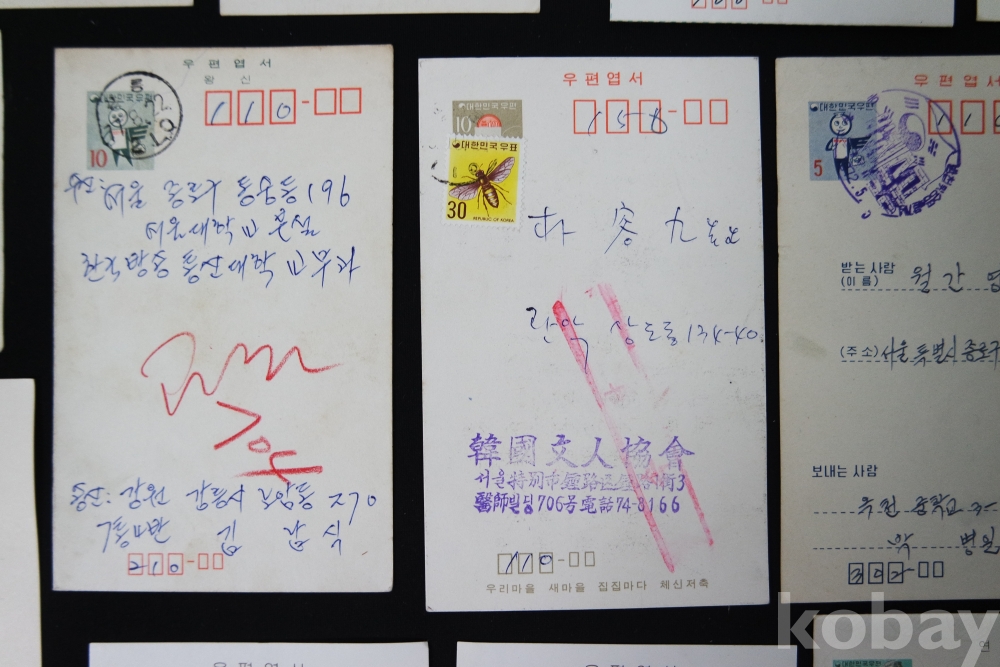 우편엽서
왕신
110-
10
수신: 서울 종로구 동숭동 196
서울대학교 본실
한국방송통신대학 교무과
강원 강릉시 포남동 270
김
210-
우편엽서
158-
대한민국우편
10
대한민국우표
30
REPUBLIC OF KOREA
朴容九
관악 상도동 134-40
韓國文人協會
서울特別市鍾路區 3
醫師빌딩706号電話74-8166
110-
우리마을 새마을 집집마다 체신저축
우편엽서
11
대한민국우편
5
받는 사람
(이 름) 월간
(주 소) 서울특별시 종로구
보내는 사람
중학교
박병
우편엽서
우편엽서
kobay